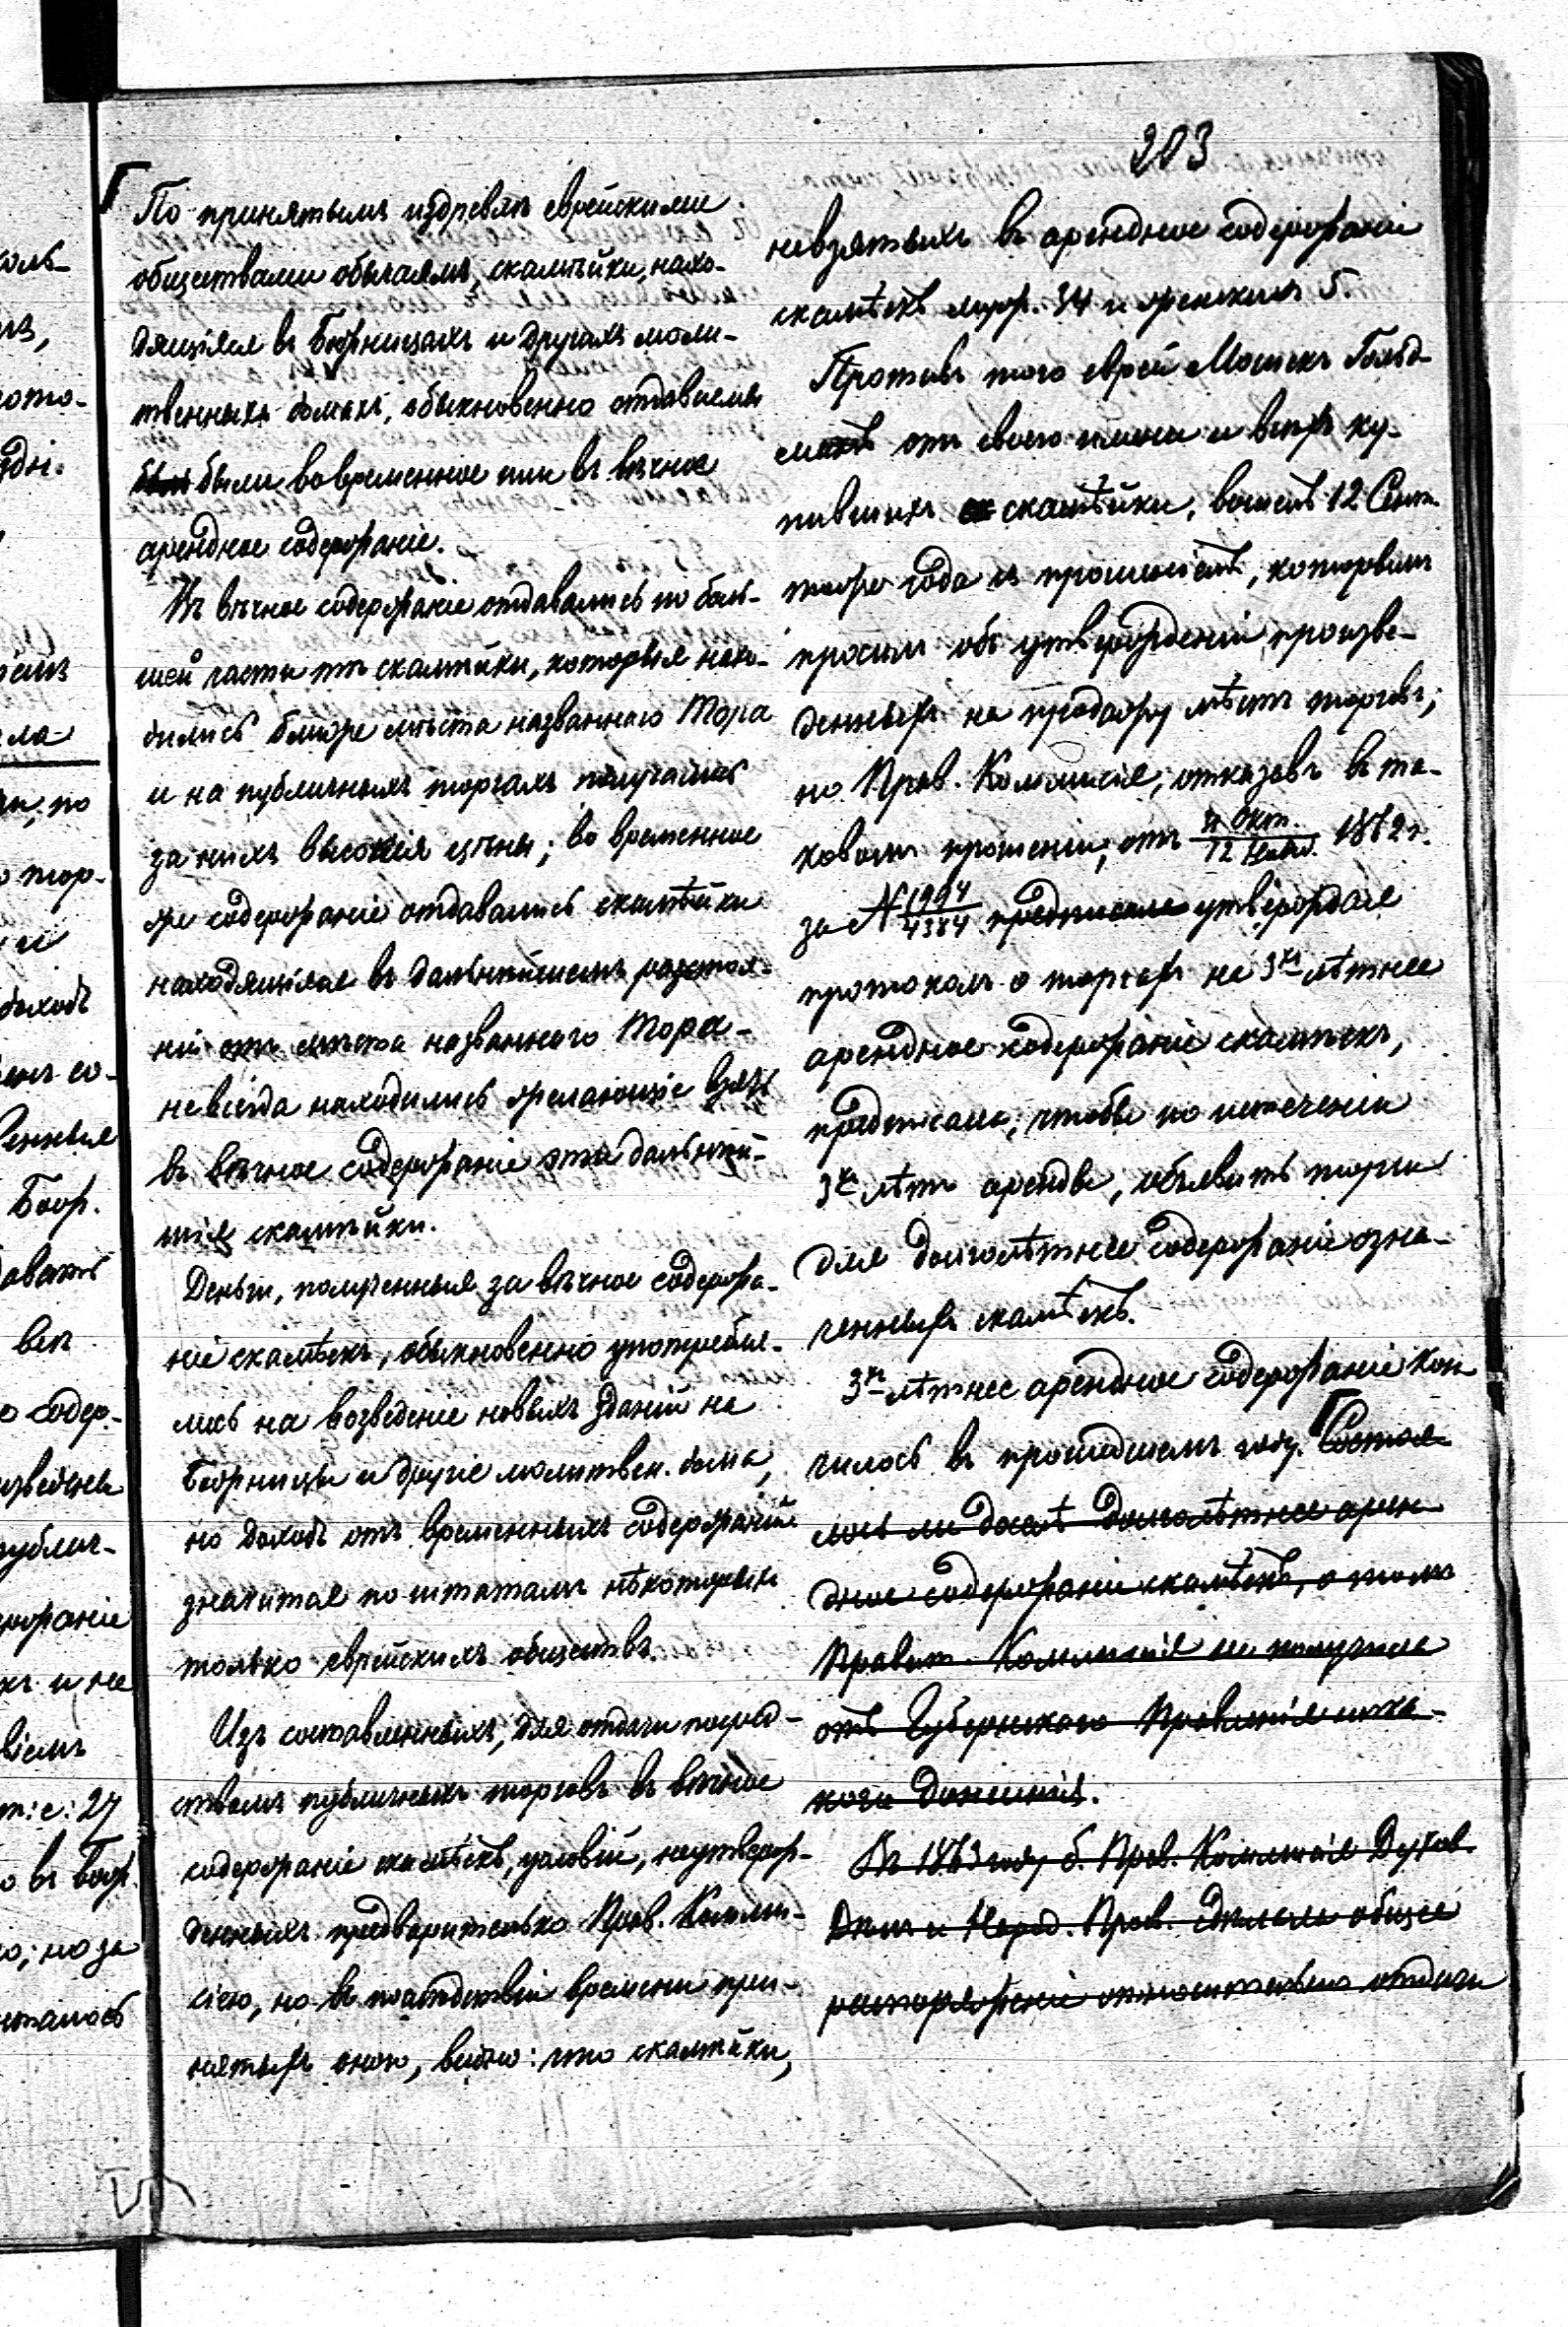 203
По принятымъ издревлѣ еврейскими
обществами обычаямъ, скамѣйки, нахо-
дящіяся въ Божницахъ и другихъ моли-
твенныхъ домахъ, обыкновенно отдаваемы
были во временное или въ вѣчное
арендное содержаніе.
Въ вѣчное содержаніе отдавались по боль-
шей части тѣ скамѣйки, которыя нахо-
дились ближе мѣста названнаго Тора
и на публичныхъ торгахъ получались
за нихъ высокія цѣны; во временное
же содержаніе отдавались скамѣйки
находящіяся въ дальнѣйшемъ разстоя-
ніи отъ мѣста названнаго Тора-
не всегда находились желающіе взять
въ вѣчное содержаніе эти дальнѣй-
шія скамѣйки.
Деньги, полученныя за вѣчное содержа-
ніе скамѣекъ, обыкновенно употребля-
лись на возведеніе новыхъ зданій на
Божницы и другіе молитвен. дома,
но доходъ отъ временныхъ содержаній
значится по штатамъ нѣкоторыхъ
только еврейскихъ обществъ.
Изъ составленныхъ, для отдачи посред-
ствомъ публичныхъ торговъ въ вѣчное
содержаніе скамѣекъ, условій, неутверж-
денныхъ предварительно Прав. Комми-
сіею, но въ послѣдствіи времени при-
нятыхъ оною, видно: что скамѣйки,
невзятыхъ въ арендное содержаніе
скамѣекъ муж. 34 и женскихъ 5.
Противъ того еврей Мошекъ Гольд-
отъ своего имени и всѣхъ ку-
пившихъ скамѣйки, вошелъ 12 Сент.
того же года съ прошеніемъ, которымъ
просилъ объ утвержденіи произве-
денныхъ на продажу мѣстъ торговъ;
но Прав. Коммисія, отказавъ въ та-
ковомъ прошеніи, отъ 31 Окт./12 Нояб. 1862 г.
за N 1994/4384 предписала утверждая
протоколъ о торгахъ на 3хъ лѣтнее
арендное содержаніе скамѣекъ,
предписала, чтобы по истеченіи
3хъ лѣтъ аренды, объявить торги
для долголѣтнее содержаніе озна-
ченныхъ скамѣекъ.
3хъ лѣтнее арендное содержаніе кон-
чилось въ прошедшемъ году. Состоя-
лось ли долголѣтнее арен-
дное содержаніе скамѣекъ, о томъ
Правит. Коммисія не получила
отъ Губернскаго Правленія ника-
кого донесенія.
Въ 1863 году б. Прав. Коммисія Духов.
Дѣлъ и Народ. Просв. сдѣлала общее
распоряженіе относительно отдачи